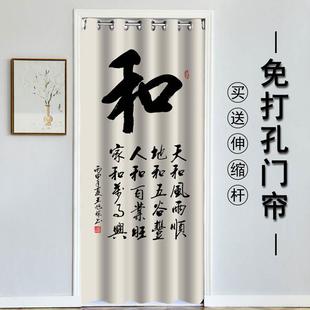 和
天和風雨順
地和五谷豐
人和百業旺
家和萬事興
免打孔门帘
买送伸缩杆